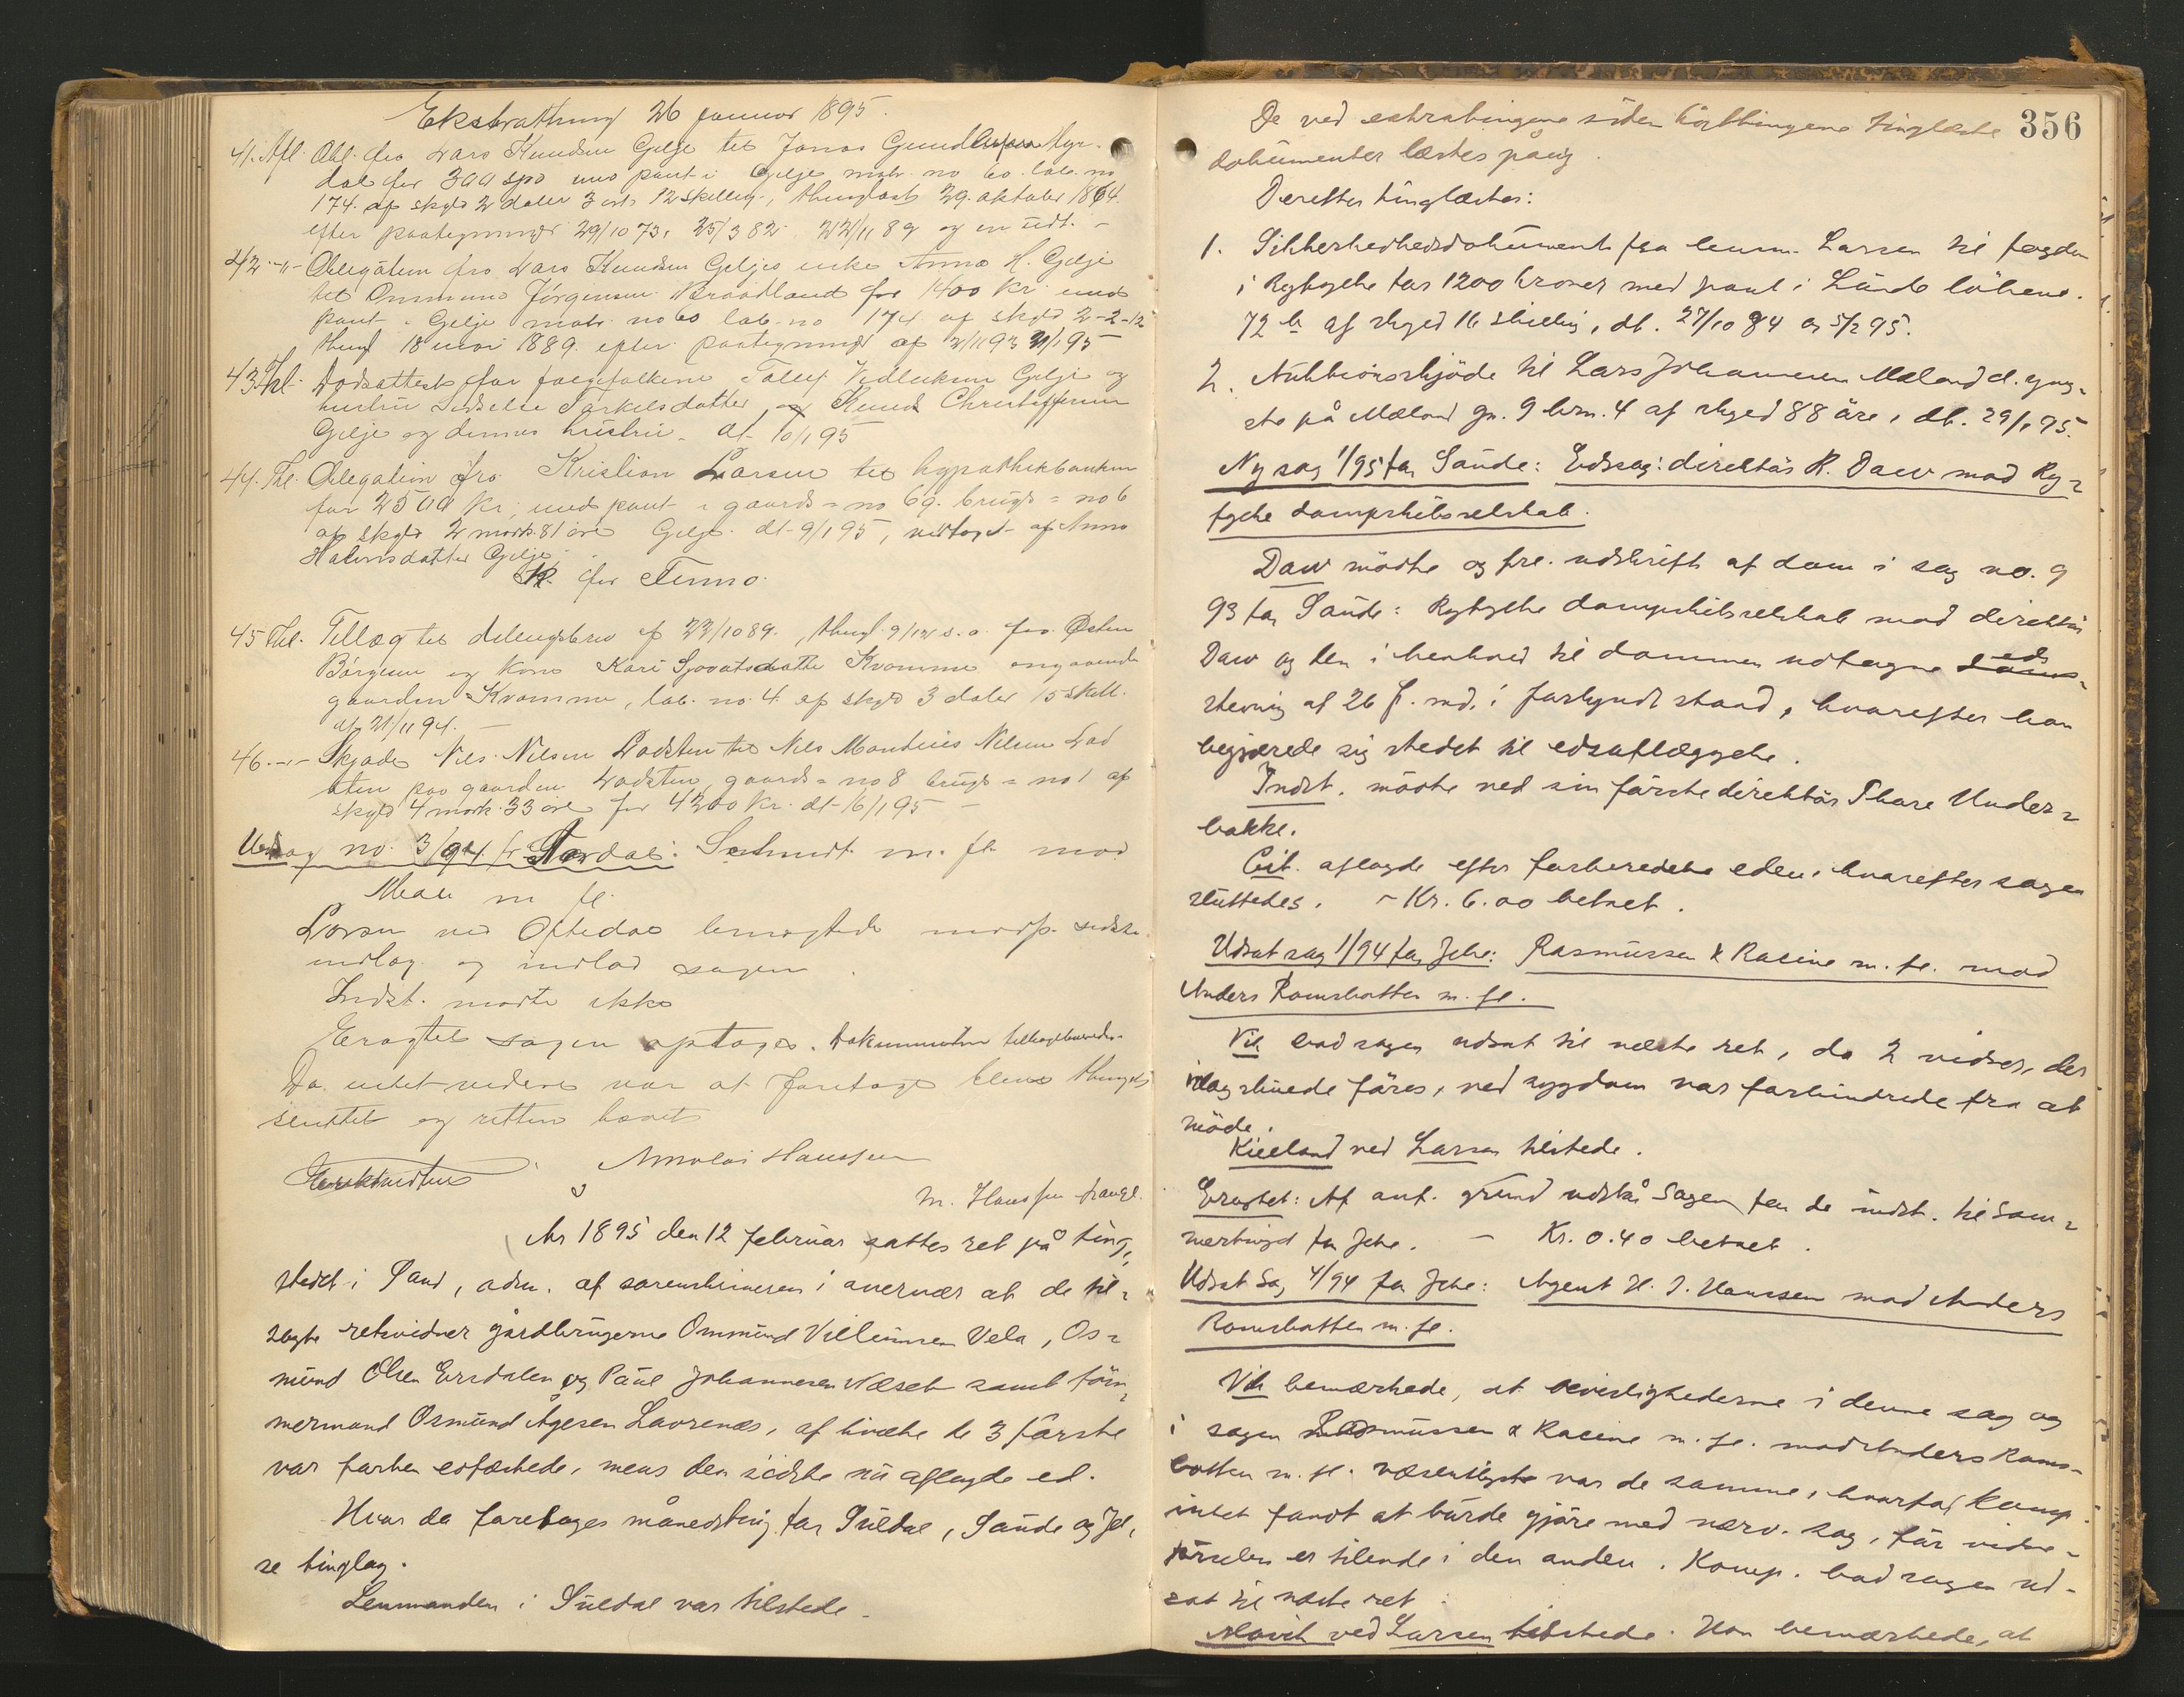 Ekstrathing 26 januar 1895.
41. Afl. Obl. fra Lars Knudsen Gilje til Jonas Gundersen Myr-
dal for 300 spd med pant i Gilje matr. no 60. løb. no
174. af skyld 2 daler 3 ort 12 skilling, thinglæst 29. oktober 1864.
efter paategninger 29/10 73, 25/3 82 22/11 89 og en udt. -
42 -"- Obligation fra Lars Knudsen Giljes enke Anna H. Gilje
til Ommund Jörgensen Braadland for 1400 kr. med
pant i Gilje matr. no 60 løb. no 174 af skyld 2-2-12
thingl 18 mai 1889. efter paategninger af 2/11 93 21/1 95 -
43. Thl. Dödsattest for folgefolkene Tollef Vedleksen Gilje og
hustru Sidselse Torkelsdatter, og Knud Christoffersen
Gilje og dennes hustru. dt. 10/1 95
44. Thl. Obligation fra Kristian Larsen til hypothekbanken
for 2500 kr, med pant i gaards-no 69. brugs-no 6
af skyld 2 mark 81 öre Gilje. dt. 9/1 95, vedtaget af Anna
Halvorsdatter Gilje.
for Finnö.
45 Thl. Tillæg til delingsbrev af 22/10 89., thingl. 9/12 s. a. fra Østen
Börgesen og kone Kari Sjovatsdatter Kvamme angaaende
gaarden Kvamme, løb. no. 4 af skyld 3 daler 15 skill.
af 21/11 94. -
46. -"- Skjøde Nils Nilsen Ladsten til Nils Mandius Nilsen Lad
sten paa gaarden Ladsten gaards-no 8 brugs-no 1 af
skyld 4 mark 33 öre for 4200 kr. dt. 16/1 95 -
Uds. sag no. 3/94 f. Aardal: Schmidt m. fl. mod
m fl.
Larsen ved Oftedal bemægtede modp. sidste
indlæg og indlod sagen.
Indst. mødte ikke
Eragtet sagen optages. Dokumenterne tilbageleveredes.
Da intet videre var at foretage blev thinget
sluttet og retten hævet
Nikolai Hanssen
M. Hanssen
År 1895 den 12 februar sattes ret på ting-
stedet i Sand, adm. af sorenskriveren i overvær af de til-
sagte retsvidner gårdbrugerne Ommund Villumsen Vela, Os-
mund Olsen Ersdalen og Paul Johannesen Næset samt töm-
mermand Osmund Agesen Lavrenæs, af hvilke de 3 förste
var forhen edfæstede, mens den sidste nu aflagde ed.
Hvor da foretoges månedsting for Suldal, Sande og Jel-
se tinglag.
Lensmanden i Suldal var tilstede.
356
De ved extratingene siden hösttingene tinglæste
dokumenter læstes påny.
Derefter tinglæstes:
1. Sikkerhedsdokument fra lensm. Larsen til fogden
i Ryfylke for 1200 kroner med pant i Lunde löbeno.
72 b af skyld 16 skilling, dt. 27/10 84 og 5/2 95.
2. Auktionsskjöde til Lars Johannesen Mæland d. yng-
ste på Mæland gn. 9 brn. 4 af skyld 88 öre, dt. 29/1 95.
Ny sag 1/95 for Sande: Edssag: direktör R. Daw mod Ry-
fylke dampskibsselskab.
Daw mödte og fre. udskrift af dom i sag no. 9
93 for Sande: Ryfylke dampskibsselskab mod direktör
Daw og den i henhold til dommen udtagne eds-
stevning af 26 f. md. i forkyndt stand, hvorefter han
begjærede sig stedet til edsaflæggelse.
Indst. mödte ved sin förste direktör Thore Under-
bakke.
Cit. aflagde efter forberedelse eden, hvorefter sagen
sluttedes. - Kr. 6.00 betalt.
Udsat sag 1/94 for Jelse: Rasmussen & Racine m. fl. mod
Anders Ramsbotten m. fl.
Vik bad sagen udsat til næste ret, da 2 vidner, der
idag skulde föres, ved sygdom var forhindrede fra at
möde.
Kielland ved Larsen tilstede.
Eragtet: Af anf. grund udstår sagen for de indst. til som-
mertinget for Jelse. - Kr. 0.40 betalt.
Udsat Sag 4/94 for Jelse: Agent H. J. Hanssen mod Anders
Ramsbotten m. fl.
Vik bemærkede, at bevislighederne i denne sag og
i sagen Rasmussen & Racine m. fl. mod Anders Rams-
botten m. fl. væsentligst var de samme, hvorfor komp.
intet fandt at burde gjöre med nærv. sag, för vidne-
förselen er tilende i den anden. Komp. bad sagen ud-
sat til næste ret.
ved Larsen tilstede. Han bemærkede, at